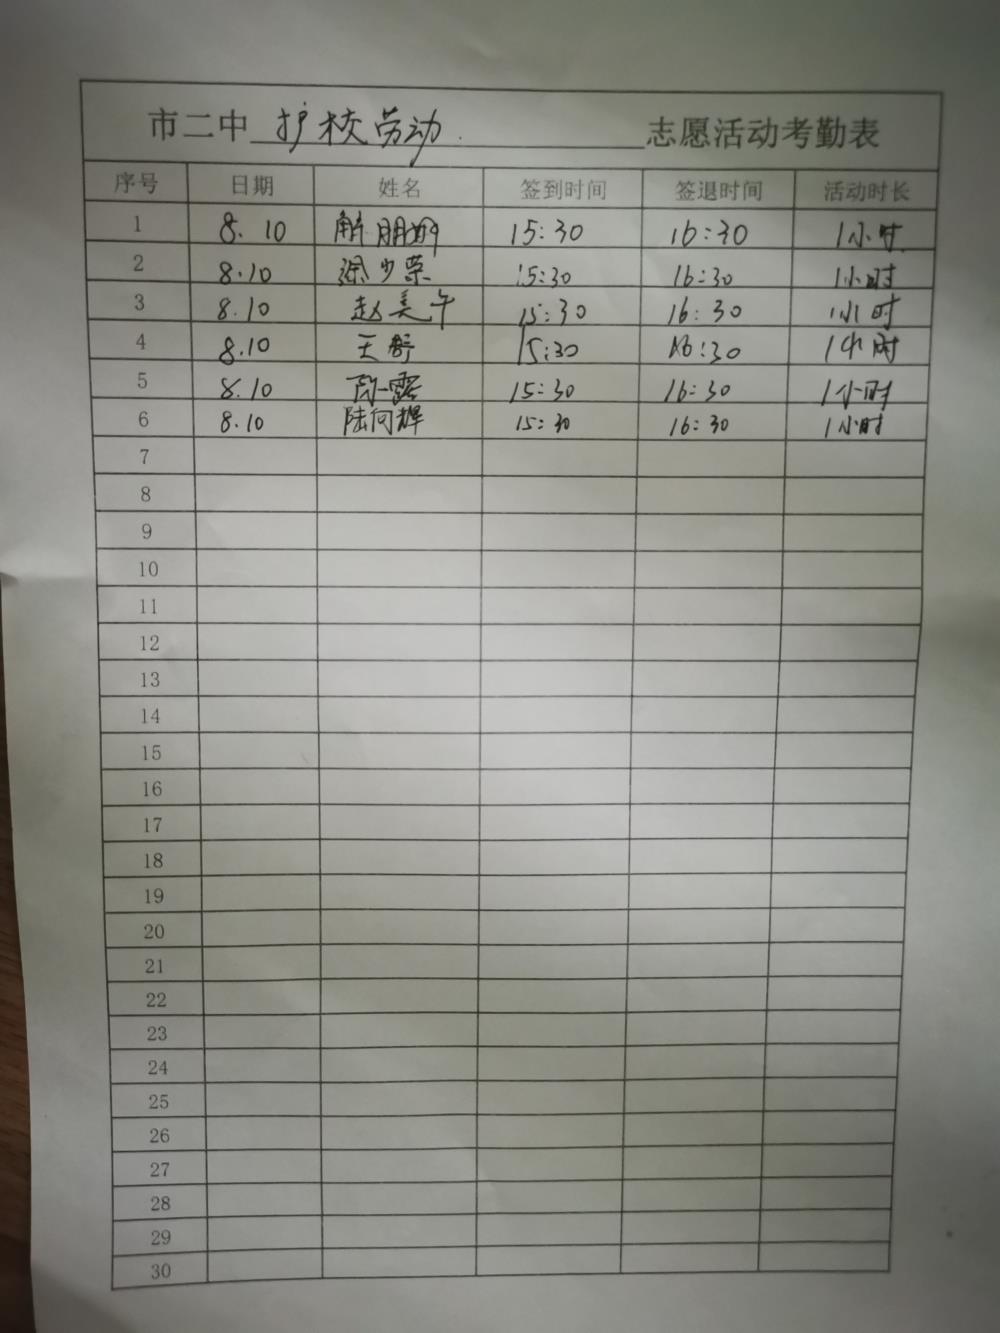 市二中 护校劳动 志愿活动考勤表
序号 日期 姓名 签到时间 签退时间 活动时长
1 8.10 解朋 15:30 16:30 1小时
2 8.10 涂少荣 15:30 16:30 1小时
3 8.10 赵美午 15:30 16:30 1小时
4 8.10 王舒 15:30 16:30 1小时
5 8.10 15:30 16:30 1小时
6 8.10 陆向辉 15:30 16:30 1小时
7
8
9
10
11
12
13
14
15
16
17
18
19
20
21
22
23
24
25
26
27
28
29
30